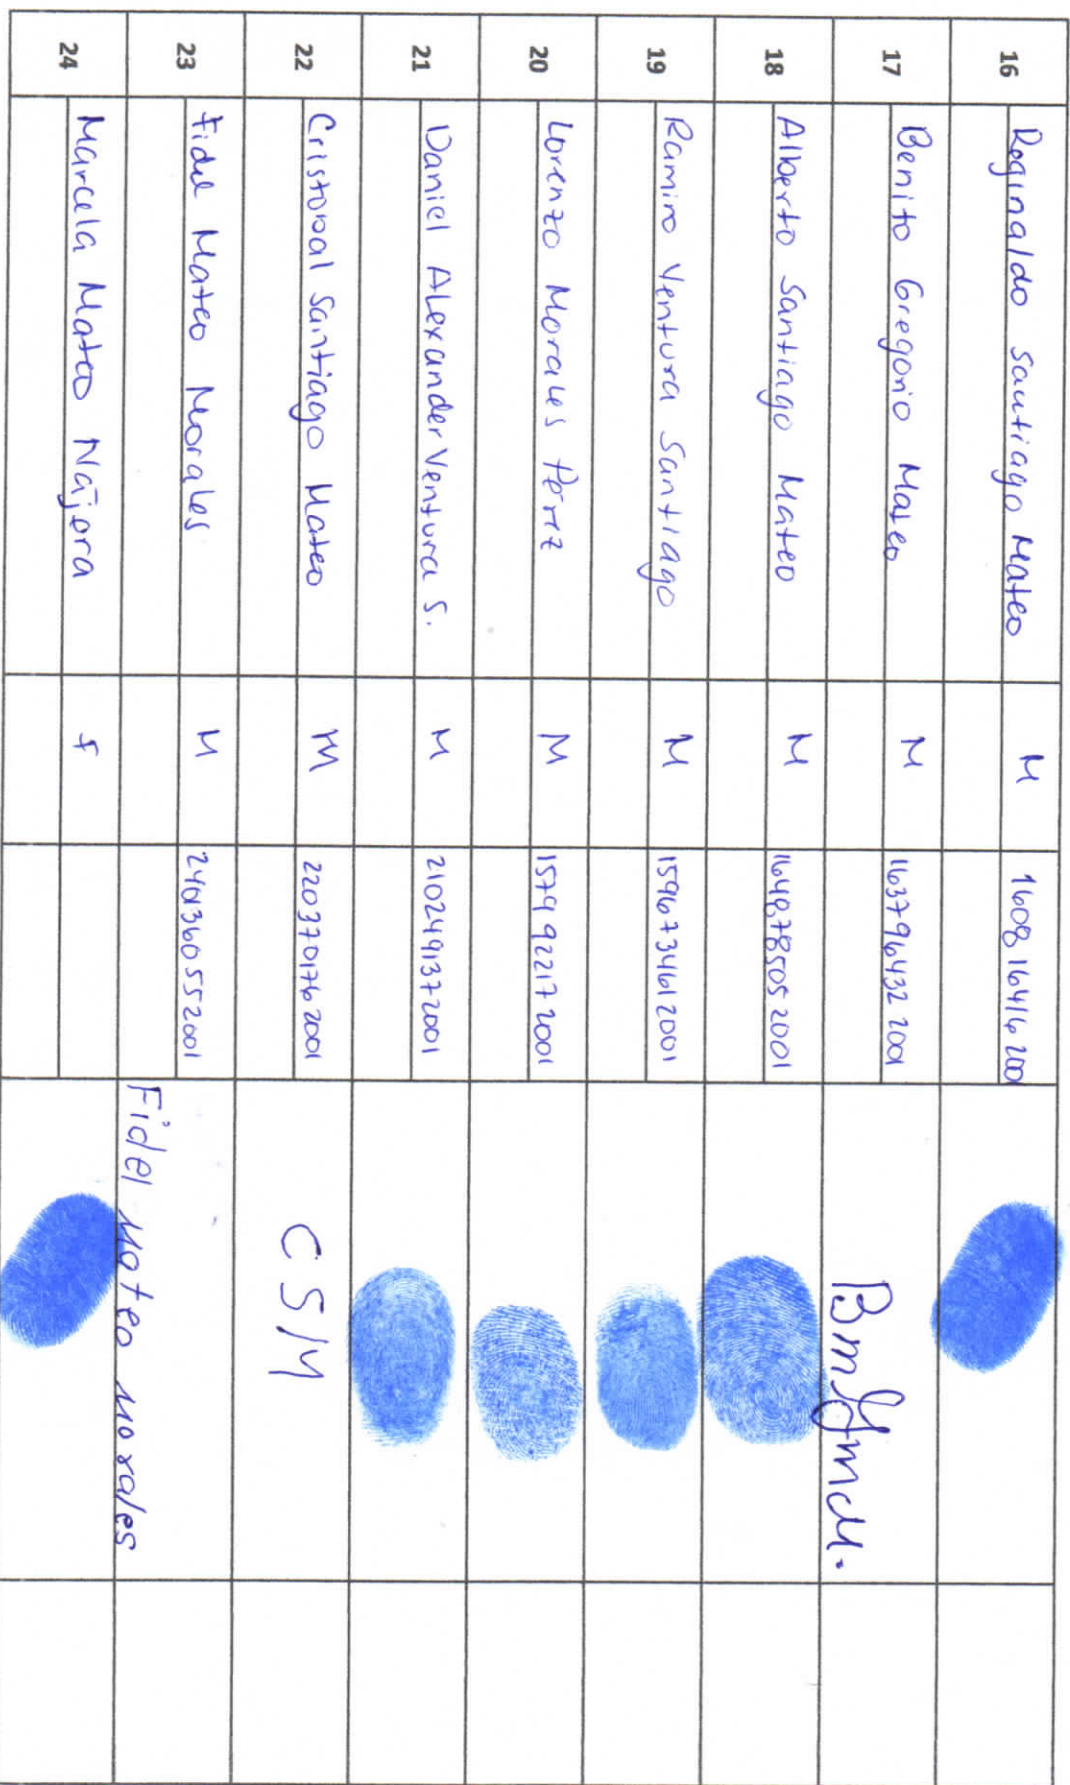 16 Reginaldo Santiago Mateo M 160816416 2001
17 Benito Gregorio Mateo M 163796432 2001
18 Alberto Santiago Mateo M 164878505 2001
19 Ramiro Ventura Santiago M 159673461 2001
20 Lorenzo Morales Perez M 157992217 2001
21 Daniel Alexander Ventura S. M 210249137 2001
22 Cristoval Santiago Mateo M 220370176 2001 CSM
23 Fidel Mateo Morales M 240136055 2001 Fidel Mateo Morales
24 Marcela Mateo Najera f